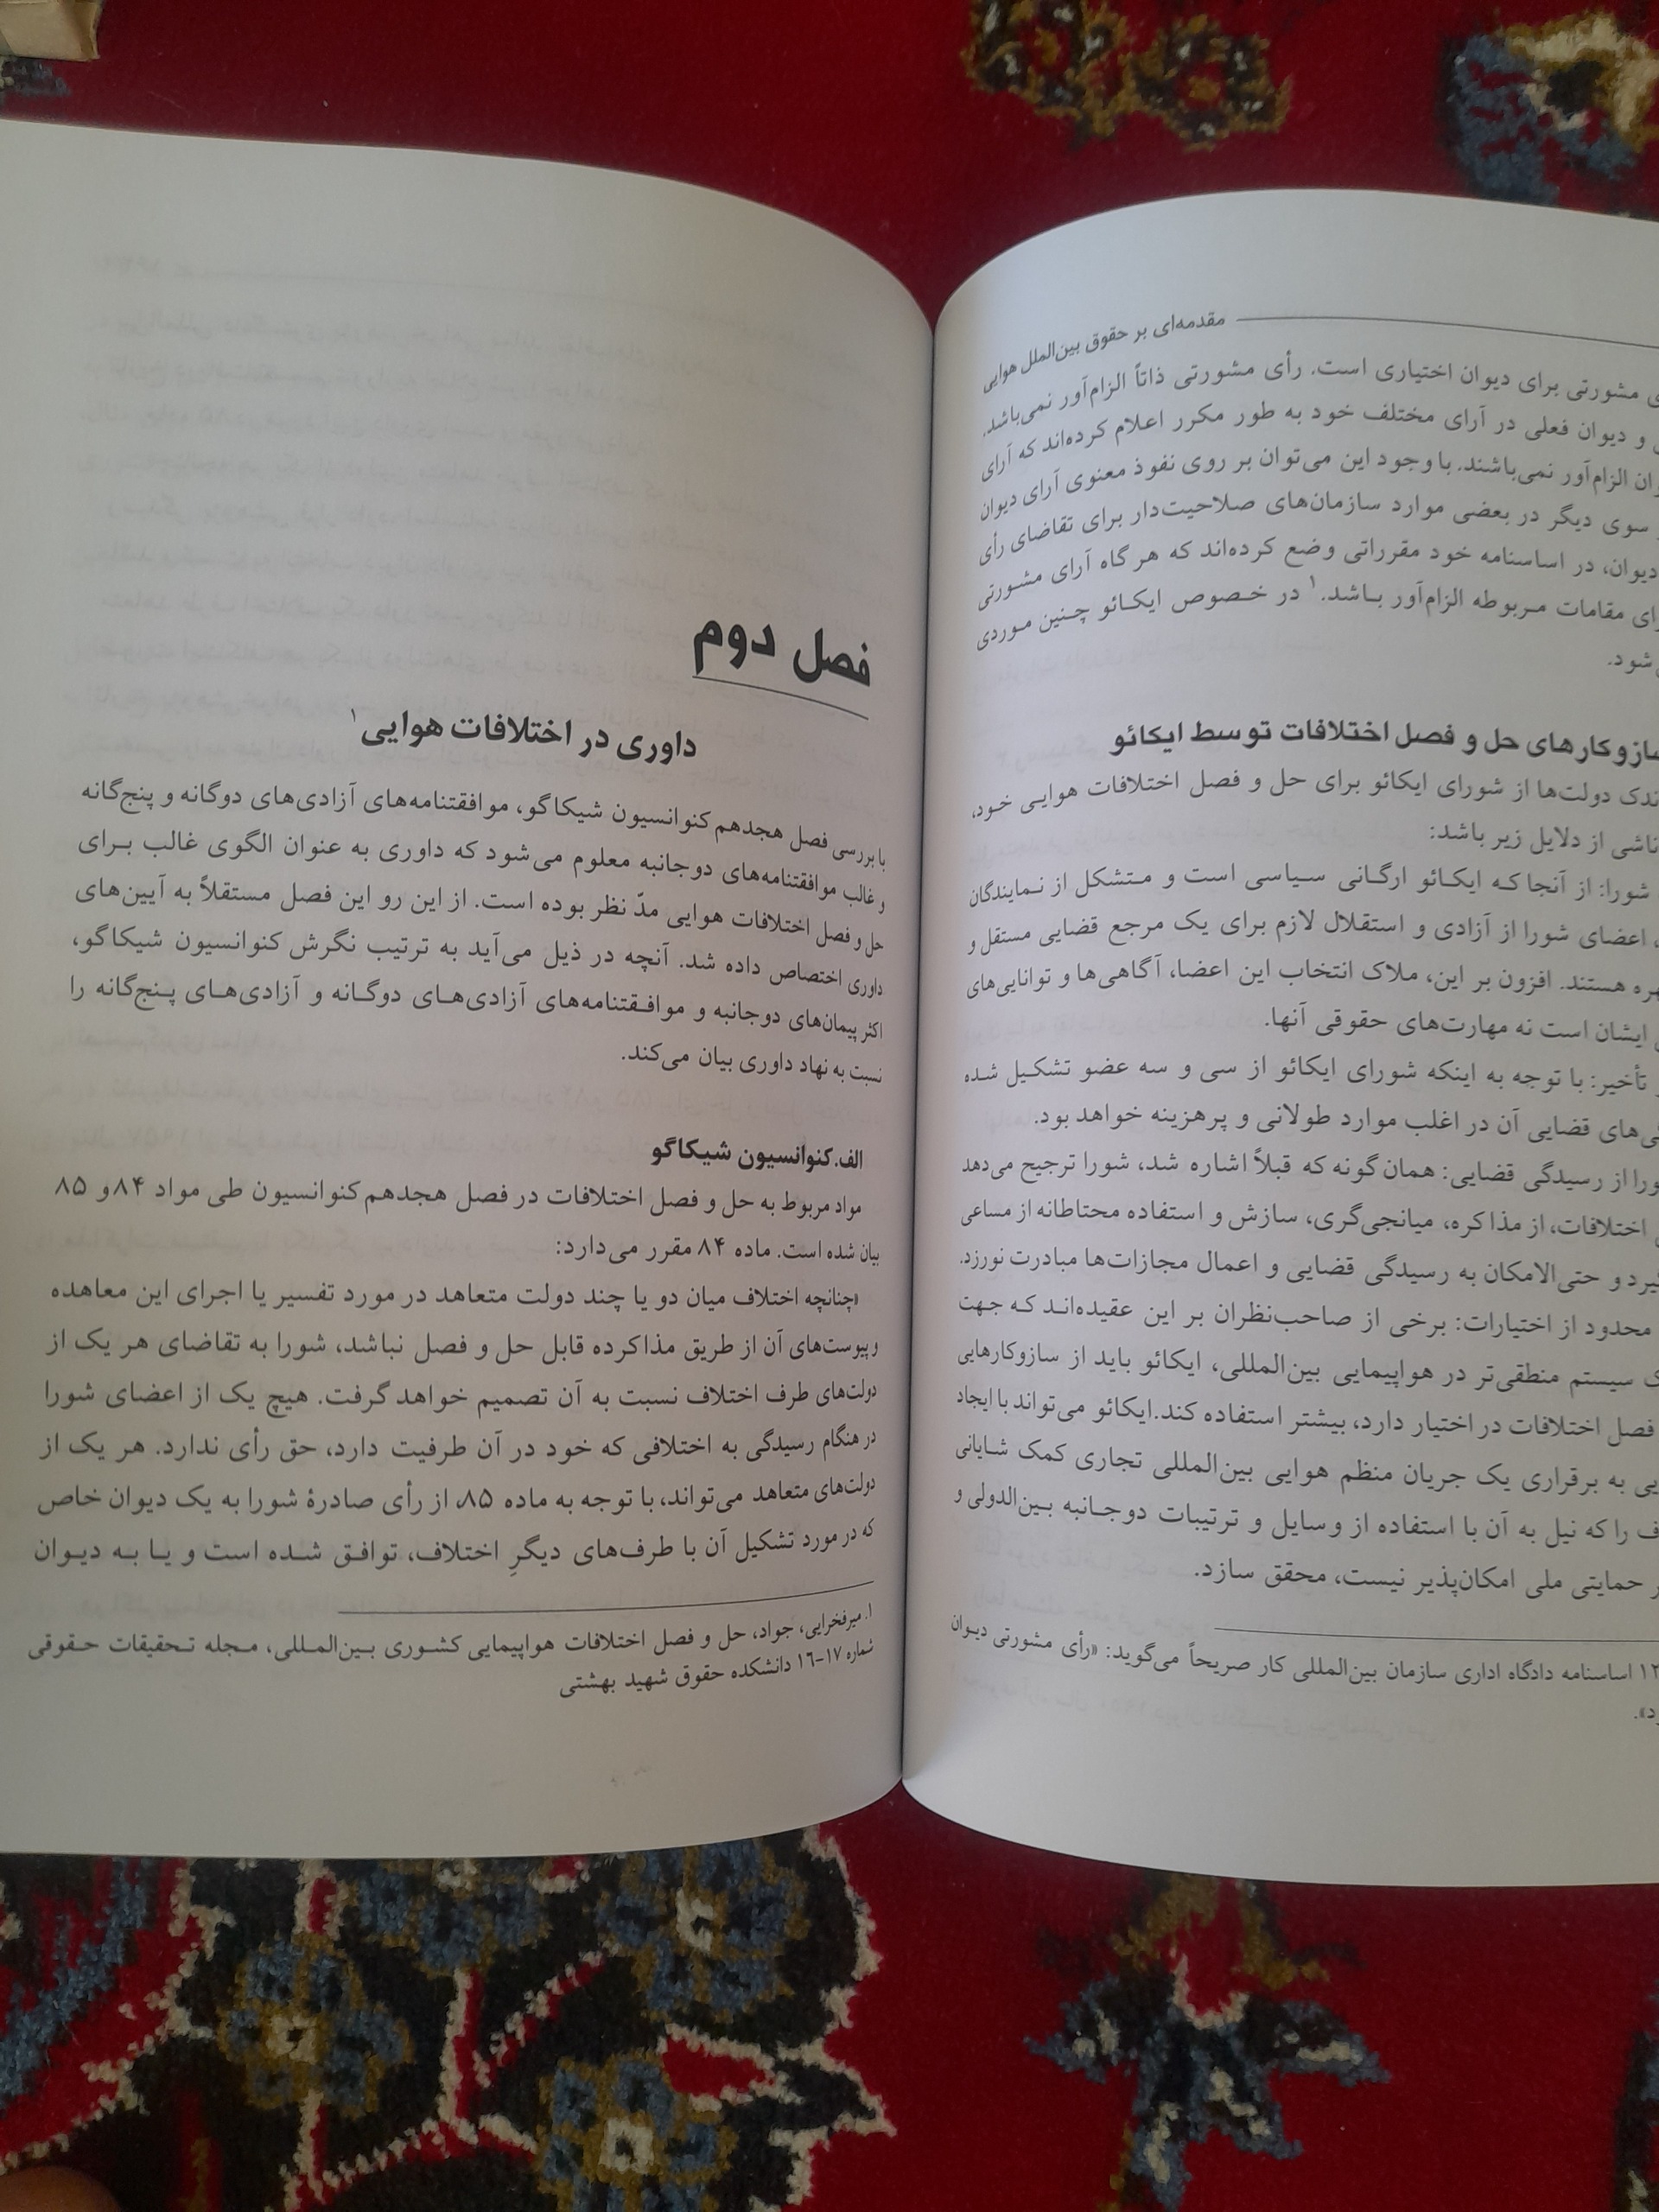 مقدمه‌ای بر حقوق بین‌الملل هوایی
مشورتی برای دیوان اختیاری است. رأی مشورتی ذاتاً الزام‌آور نمی‌باشد.
و دیوان فعلی در آرای مختلف خود به طور مکرر اعلام کرده‌اند که آرای
الزام‌آور نمی‌باشند. با وجود این می‌توان بر روی نفوذ معنوی آرای دیوان
سوی دیگر در بعضی موارد سازمان‌های صلاحیت‌دار برای تقاضای رأی
دیوان، در اساسنامه خود مقرراتی وضع کرده‌اند که هر گاه آرای مشورتی
مقامات مربوطه الزام‌آور باشد.۱ در خصوص ایکائو چنین موردی
شود.
سازوکارهای حل و فصل اختلافات توسط ایکائو
دولت‌ها از شورای ایکائو برای حل و فصل اختلافات هوایی خود،
ناشی از دلایل زیر باشد:
شورا: از آنجا که ایکائو ارگانی سیاسی است و متشکل از نمایندگان
اعضای شورا از آزادی و استقلال لازم برای یک مرجع قضایی مستقل و
هستند. افزون بر این، ملاک انتخاب این اعضا، آگاهی‌ها و توانایی‌های
ایشان است نه مهارت‌های حقوقی آنها.
تأخیر: با توجه به اینکه شورای ایکائو از سی و سه عضو تشکیل شده
قضایی آن در اغلب موارد طولانی و پرهزینه خواهد بود.
از رسیدگی قضایی: همان گونه که قبلاً اشاره شد، شورا ترجیح می‌دهد
اختلافات، از مذاکره، میانجی‌گری، سازش و استفاده محتاطانه از مساعی
و حتی‌الامکان به رسیدگی قضایی و اعمال مجازات‌ها مبادرت نورزد.
محدود از اختیارات: برخی از صاحب‌نظران بر این عقیده‌اند که جهت
سیستم منطقی‌تر در هواپیمایی بین‌المللی، ایکائو باید از سازوکارهایی
فصل اختلافات در اختیار دارد، بیشتر استفاده کند. ایکائو می‌تواند با ایجاد
به برقراری یک جریان منظم هوایی بین‌المللی تجاری کمک شایانی
را که نیل به آن با استفاده از وسایل و ترتیبات دوجانبه بین‌الدولی و
حمایتی ملی امکان‌پذیر نیست، محقق سازد.
۱۲ اساسنامه دادگاه اداری سازمان بین‌المللی کار صریحاً می‌گوید: «رأی مشورتی دیوان
فصل دوم
داوری در اختلافات هوایی۱
با بررسی فصل هجدهم کنوانسیون شیکاگو، موافقتنامه‌های آزادی‌های دوگانه و پنج‌گانه
و غالب موافقتنامه‌های دوجانبه معلوم می‌شود که داوری به عنوان الگوی غالب برای
حل و فصل اختلافات هوایی مدّ نظر بوده است. از این رو این فصل مستقلاً به آیین‌های
داوری اختصاص داده شد. آنچه در ذیل می‌آید به ترتیب نگرش کنوانسیون شیکاگو،
اکثر پیمان‌های دوجانبه و موافقتنامه‌های آزادی‌های دوگانه و آزادی‌های پنج‌گانه را
نسبت به نهاد داوری بیان می‌کند.
الف. کنوانسیون شیکاگو
مواد مربوط به حل و فصل اختلافات در فصل هجدهم کنوانسیون طی مواد ۸۴ و ۸۵
بیان شده است. ماده ۸۴ مقرر می‌دارد:
«چنانچه اختلاف میان دو یا چند دولت متعاهد در مورد تفسیر یا اجرای این معاهده
و پیوست‌های آن از طریق مذاکرده قابل حل و فصل نباشد، شورا به تقاضای هر یک از
دولت‌های طرف اختلاف نسبت به آن تصمیم خواهد گرفت. هیچ یک از اعضای شورا
در هنگام رسیدگی به اختلافی که خود در آن طرفیت دارد، حق رأی ندارد. هر یک از
دولت‌های متعاهد می‌تواند، با توجه به ماده ۸۵، از رأی صادرۀ شورا به یک دیوان خاص
که در مورد تشکیل آن با طرف‌های دیگرِ اختلاف، توافق شده است و یا به دیوان
۱. میرفخرایی، جواد، حل و فصل اختلافات هواپیمایی کشوری بین‌المللی، مجله تحقیقات حقوقی
شماره ۱۷-۱۶ دانشکده حقوق شهید بهشتی